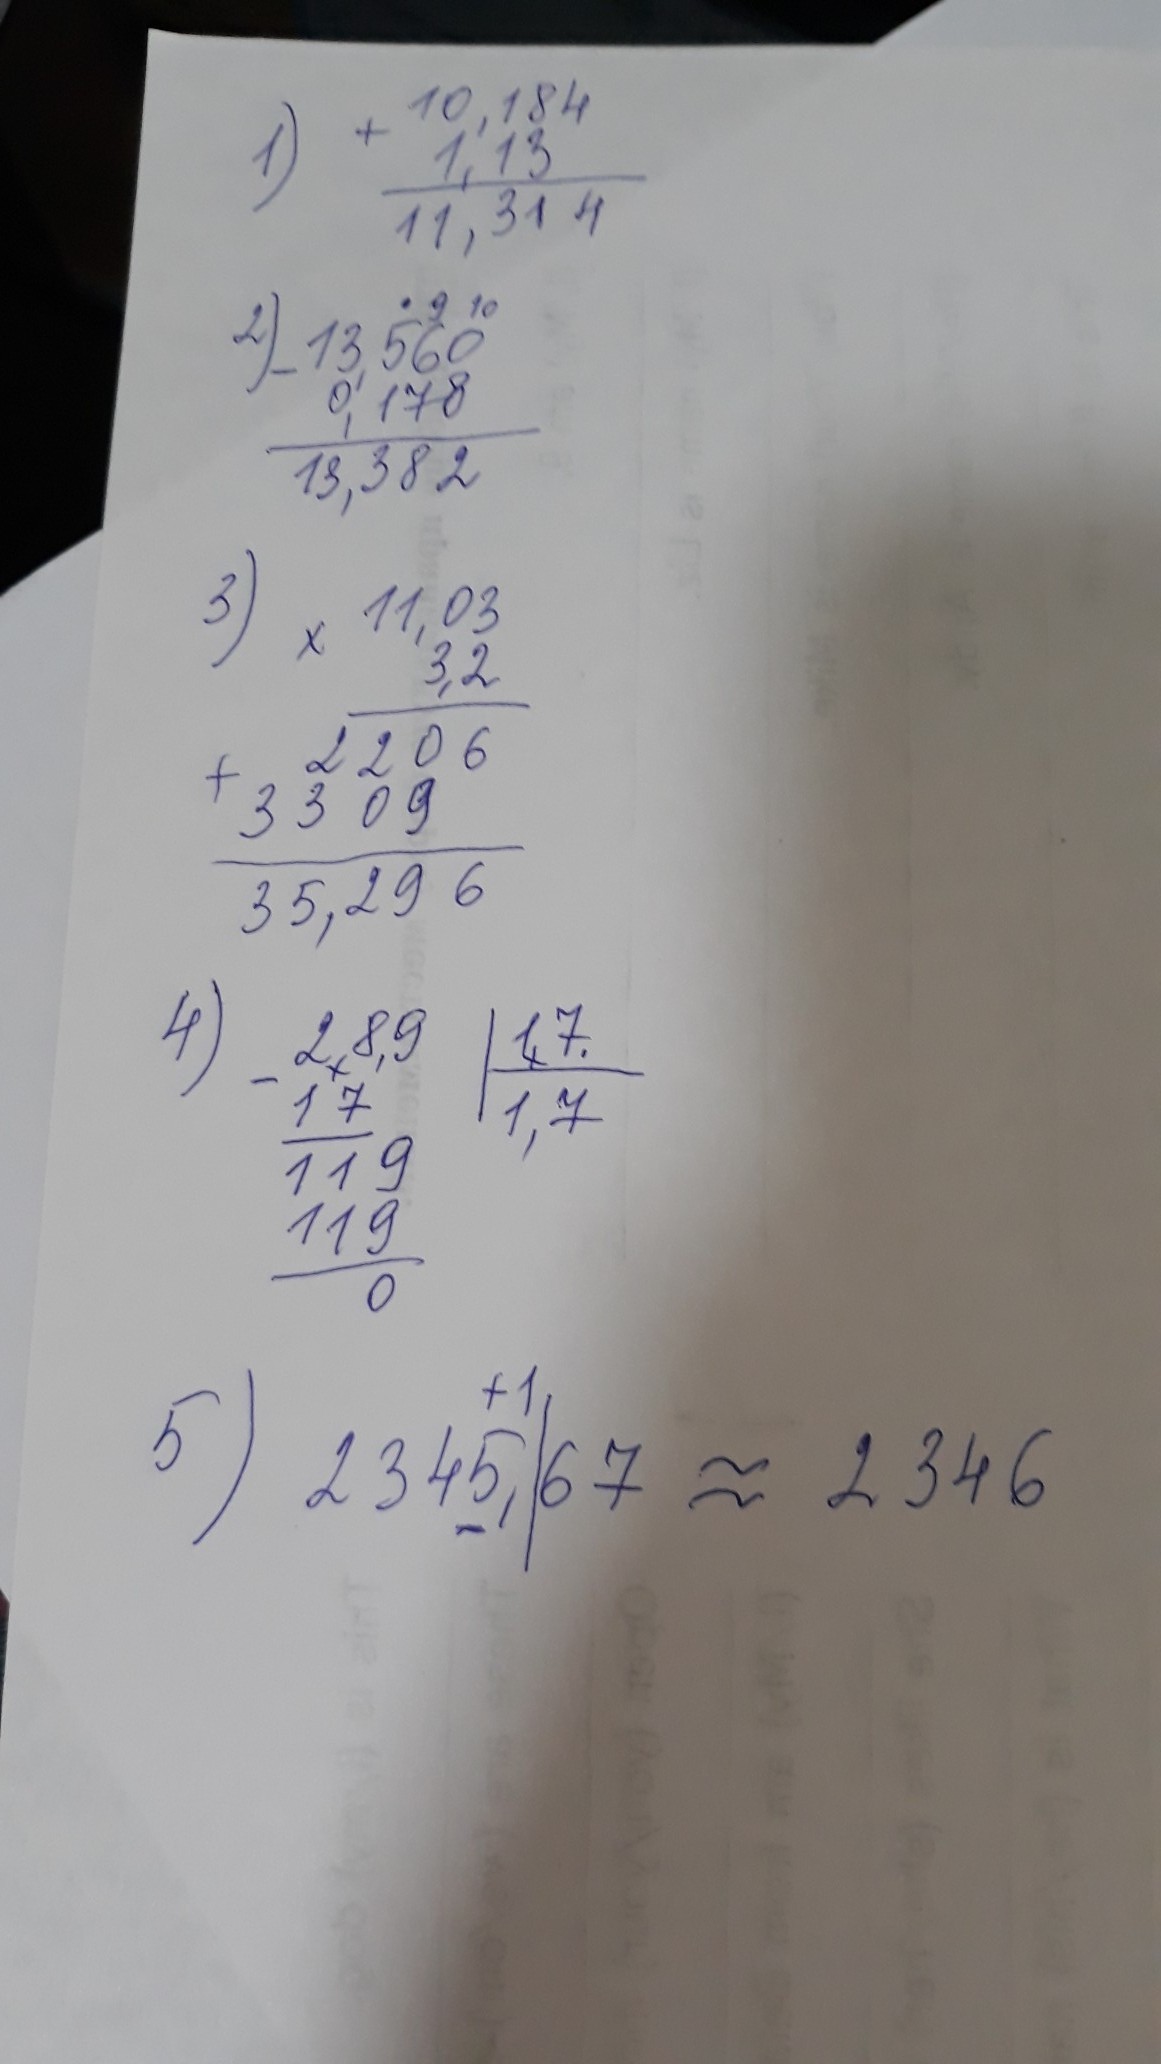 1) + 10,184
1,13
11,314
• 9 10
2) - 13,560
0,178
13,382
3) x 11,03
3,2
+ 2206
3309
35,296
4) - 2,8,9 | 1,7.
17 1,7
119
119
0
+1
5) 2345,|67 ≈ 2346